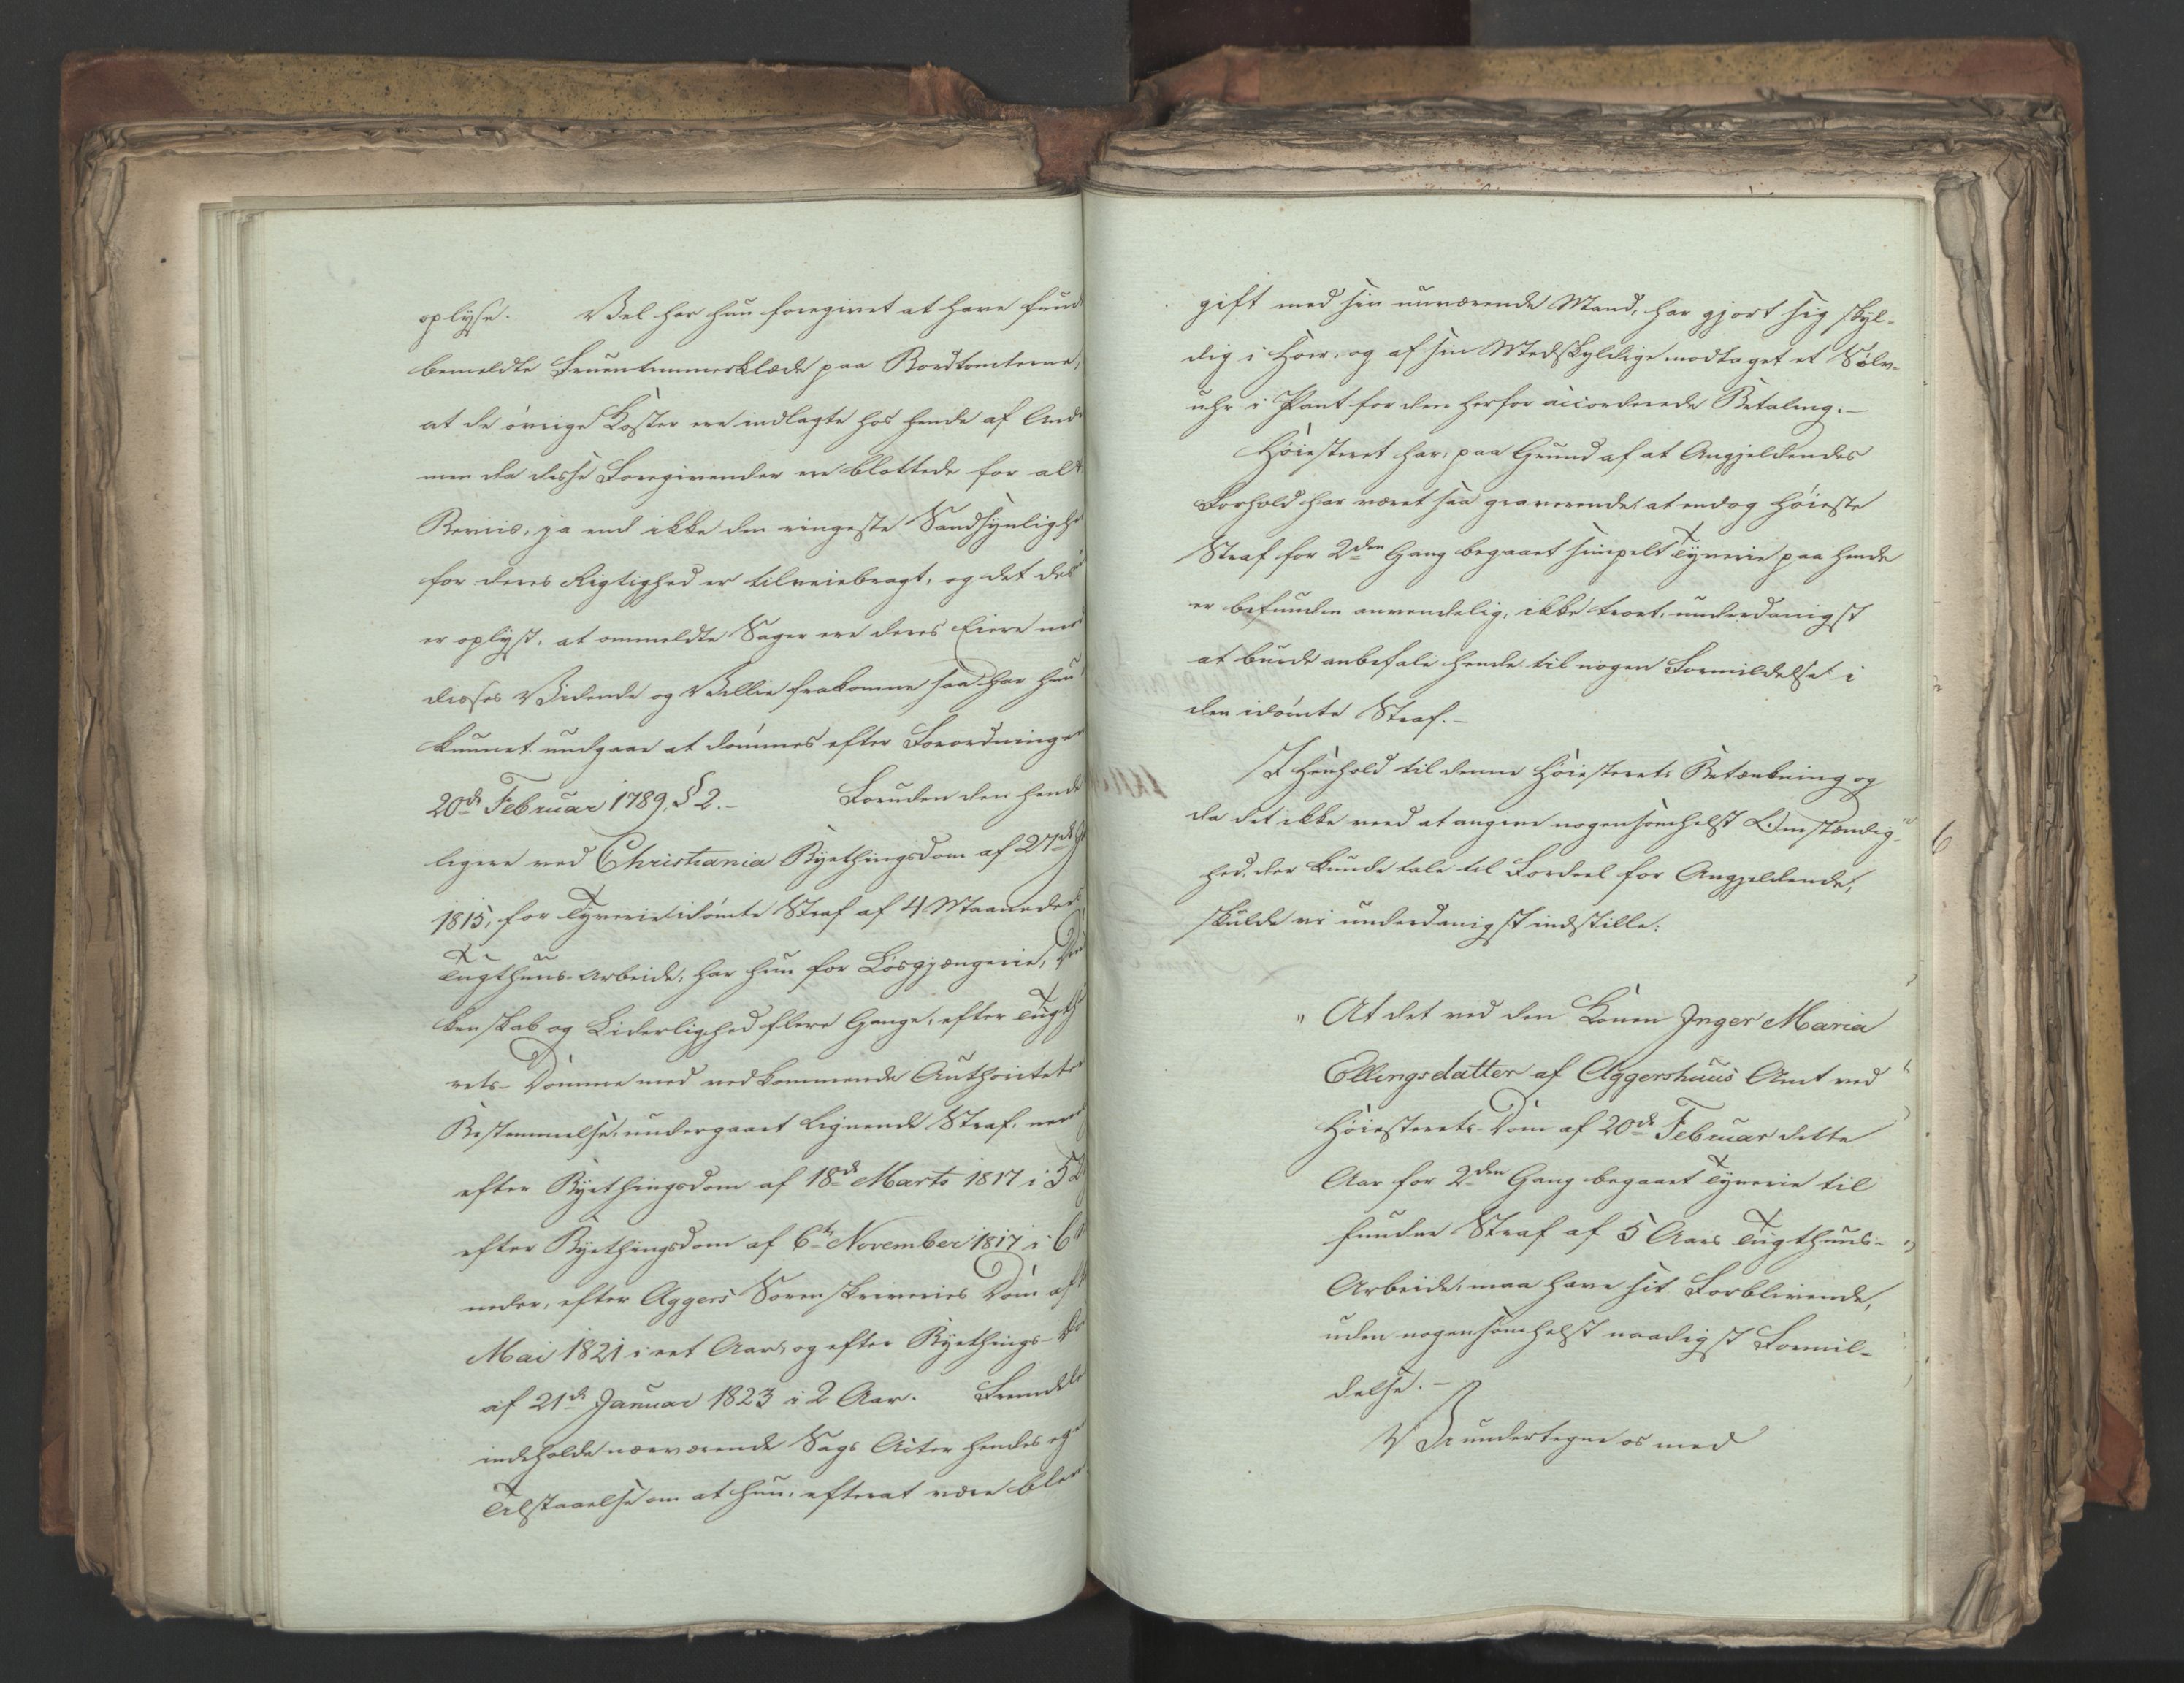 oplyse. Vel har hun foregivet at have fund
bemeldte Fruentimmerklæde paa Bordtomterne,
at de øvrige Koster ere indlagte hos hende af And
men da disse Foregivender ere blottede for alt
Beviis, ja end ikke den ringeste Sandsynlighe
for deres Rigtighed er tilveiebragt, og det des
er oplyst, at ommeldte Sager ere deres Eiere
disses Vidende og Villie frakomne saa har hun
kunnet undgaae at dømmes efter Forordningen
20de Februar 1789, § 2.- Foruden den hende
ligere ved Christiania Byethingsdom af 27de
1815, for Tyverie idømte Straf af 4 Maaneders
Tugthuus-Arbeide, har hun for Løsgjængerie, Dru
kenskab og Liderlighed flere Gange, efter Tugth
rets-Domme med vedkommende Authoritets
Bestemmelse, undergaaet Lignende Straf, nem
efter Byethingsdom af 18de Marts 1817 i 5
efter Byethingsdom af 6te November 1817 i 6
neder, efter Aggers Sorenskriveries Dom af
Mai 1821 i eet Aar, og efter Byethings-Do
af 21de Januar 1823 i 2 Aar. Fremdele
indeholde nærværende Sags Acter hendes eg
Tilstaaelse om at hun, efterat være blev
gift med sin nuværende Mand, har gjort sig skyl-
dig i Hoer, og af sin Medskyldige modtaget et Sølv-
uhr i Pant for den herfor accorderede Betaling.-
Høiesteret har, paa Grund af at Angjeldendes
Forhold har været saa graverende, at endog høieste
Straf for 2den Gang begaaet simpelt Tyverie paa hende
er befunden anvendelig, ikke troet, underdanigst
at burde anbefale hende til nogen Formildelse i
den idømte Straf.-
I Henhold til denne Høiesterets Betænkning og
da det ikke veed at angive nogensomhelst Omstændig-
hed, der kunde tale til Fordeel for Angjeldende,
skulde vi underdanigst indstille:
" At det ved den Konen Inger Maria
Ellingsdatter af Aggershuus Amt ved
Høiesterets-Dom af 20de Februar dette
Aar for 2den Gang begaaet Tyverie til
fundne Straf af 5 Aars Tugthuus-
Arbeide, maa have sit Forblivende,
uden nogensomhelst naadigst Formil-
delse.-
Vi undertegne os med